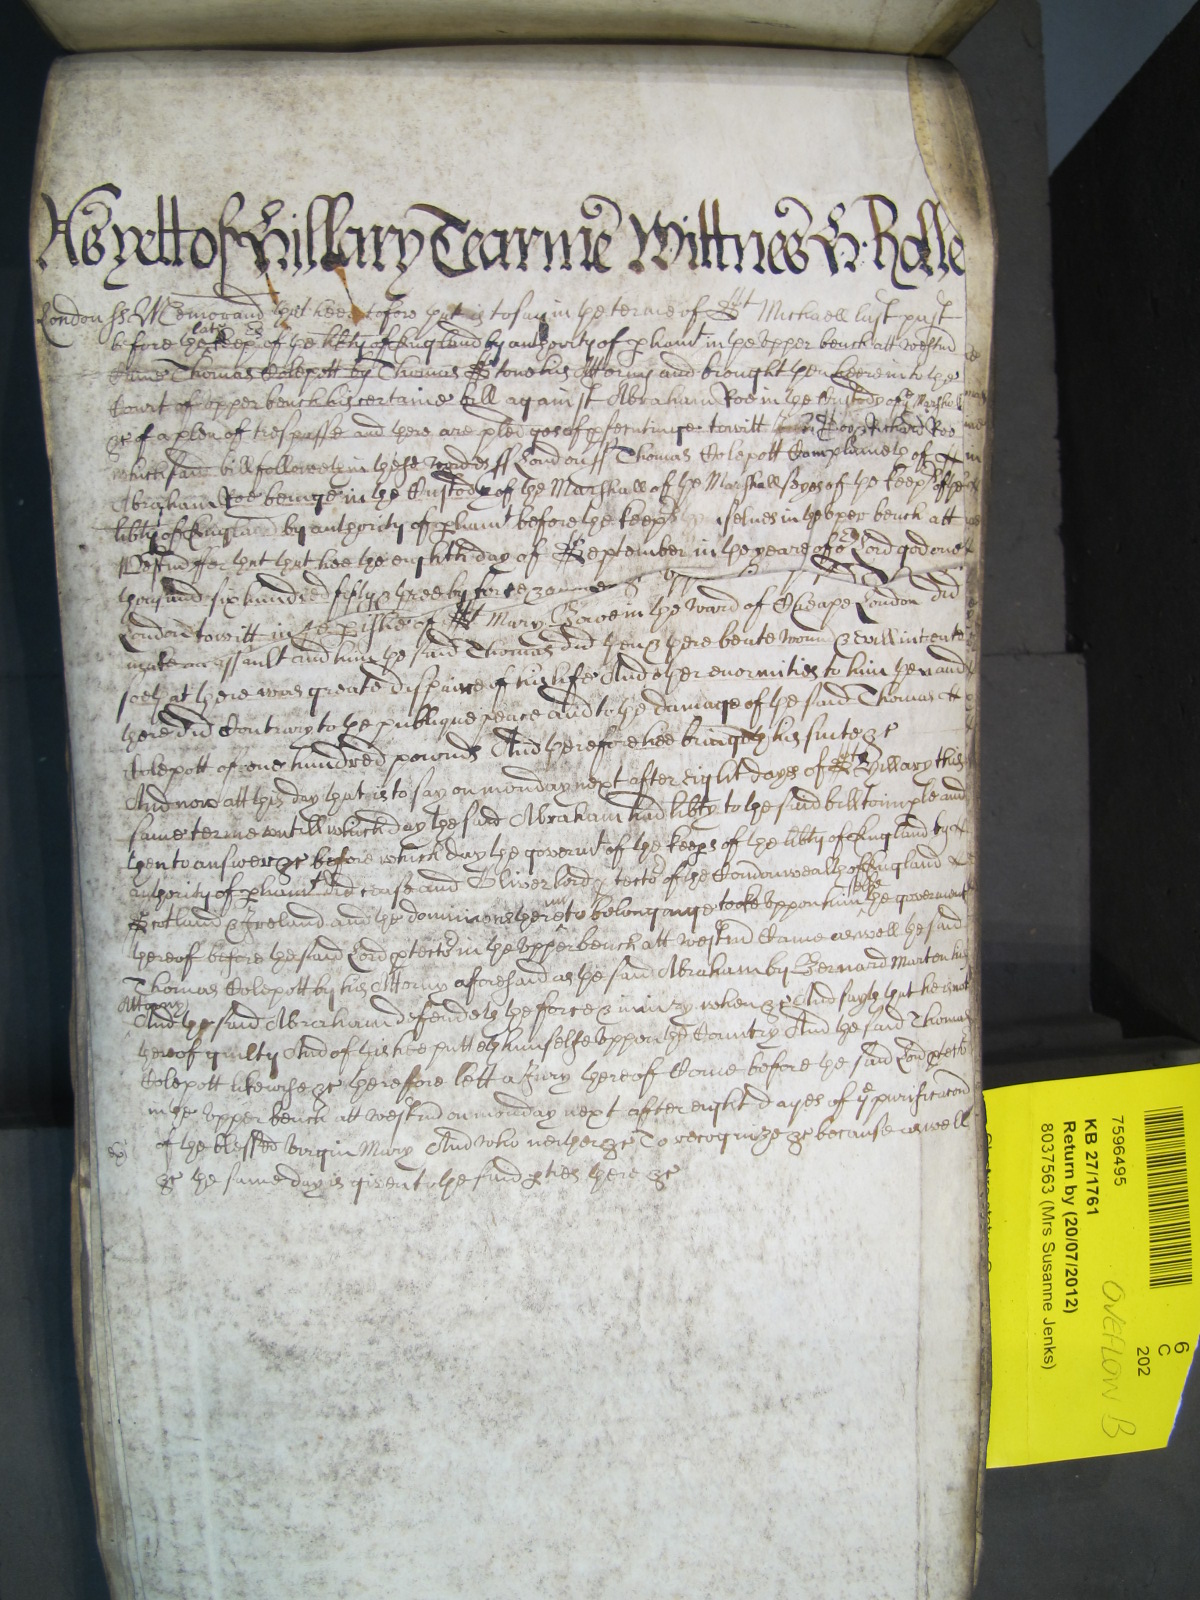 As yett of Hillary Tearme Wittnes H. Rolle
London ss Memorand that heeretofore that is to say in the terme of St Michaell last past
before the late keeps of the libty of England by authority of parliamt in the Upper bench att Westmr
Came Thomas Colepott by Thomas Stone his Attorny and brought then heere into the
Court of upper bench his certaine bill against Abraham Roe in the Custody of ye Marshall
&c of a plea of trespasse and there are pledges of psecutinge towitt John Doe & Richard Roe
which said bill followeth in these words ss London ss Thomas Colepott Complaineth of
Abraham Roe beinge in the Custody of the Marshall of the Marshallseyes of the keeps of the
libty of England by authority of parliamt before the keeps themselves in the upper bench att
Westmr ffor that that hee the eighth day of September in the yeare of or Lord god one
thousand six hundred fifty & three by force & armes &c att
London towitt in the pishe of St Mary Bowe in the ward of Cheape London did
make an assault and him the said Thomas did then & there beate wound & evill intreate
soe that there was greate dispaire of his life And other enormities to him then and
there did Contrary to the publique peace and to the damage of the said Thomas
Colepott of one hundred pounds And therefore hee bringeth his suite &c
And now att this day that is to say on monday next after eight dayes of St Hillary this
same terme untill which day the said Abraham had libty to the said bill to imple and
then to answer &c before which day the govermt of the keeps of the libty of England by
authority of parliamt did cease and Oliver lord ptector of the Comonwealth of England
Scotland & Ireland and the dominions thereto belonginge tooke uppon him selfe the goverment
thereof before the said Lord ptector in the Upper bench att westmr Came aswell the said
Thomas Colepott by his Attorny aforesaid as the said Abraham by Bernard Marten his
Attorny
And the said Abraham defendeth the force & iniury when &c And sayth that he is not
thereof guilty And of this hee putteth himselfe uppon the Country And the said Thomas
Colepott likewise &c therefore lett a Jury thereof Come before the said Lord ptector
in the Upper bench att westmr on monday next after eight dayes of ye purificacon
of the blessed virgin Mary And who neither &c To recognize &c because aswell
&c the same day is given to the said pties there &c
7596495
KB 27/1761
Return by (20/07/2012)
8037563 (Mrs Susanne Jenks)
OVERFLOW B
6
C
202